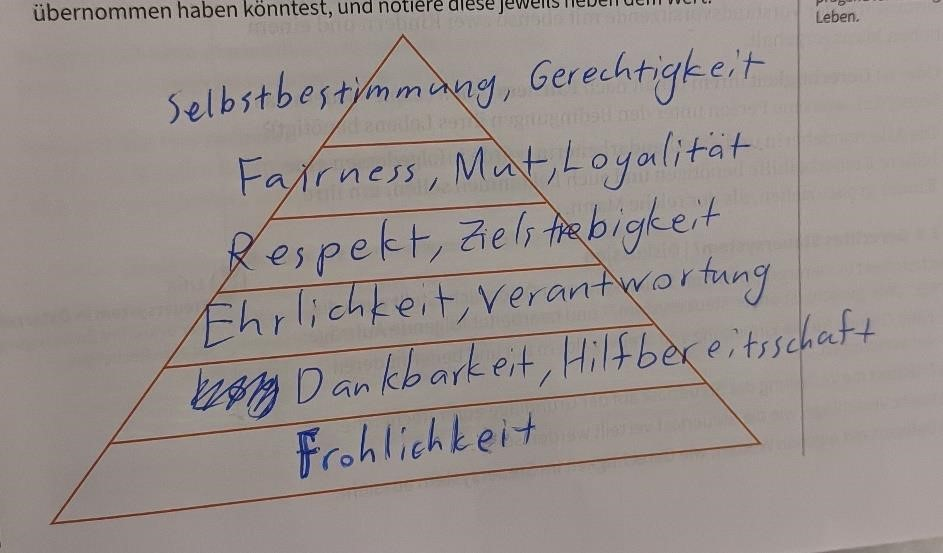 übernommen haben könntest, und notiere diese jeweils neben dem Wert.
Leben.
Selbstbestimmung, Gerechtigkeit
Fairness, Mut, Loyalität
Respekt, Zielstrebigkeit
Ehrlichkeit, Verantwortung
Dankbarkeit, Hilfbereitsschaft
Frohlichkeit